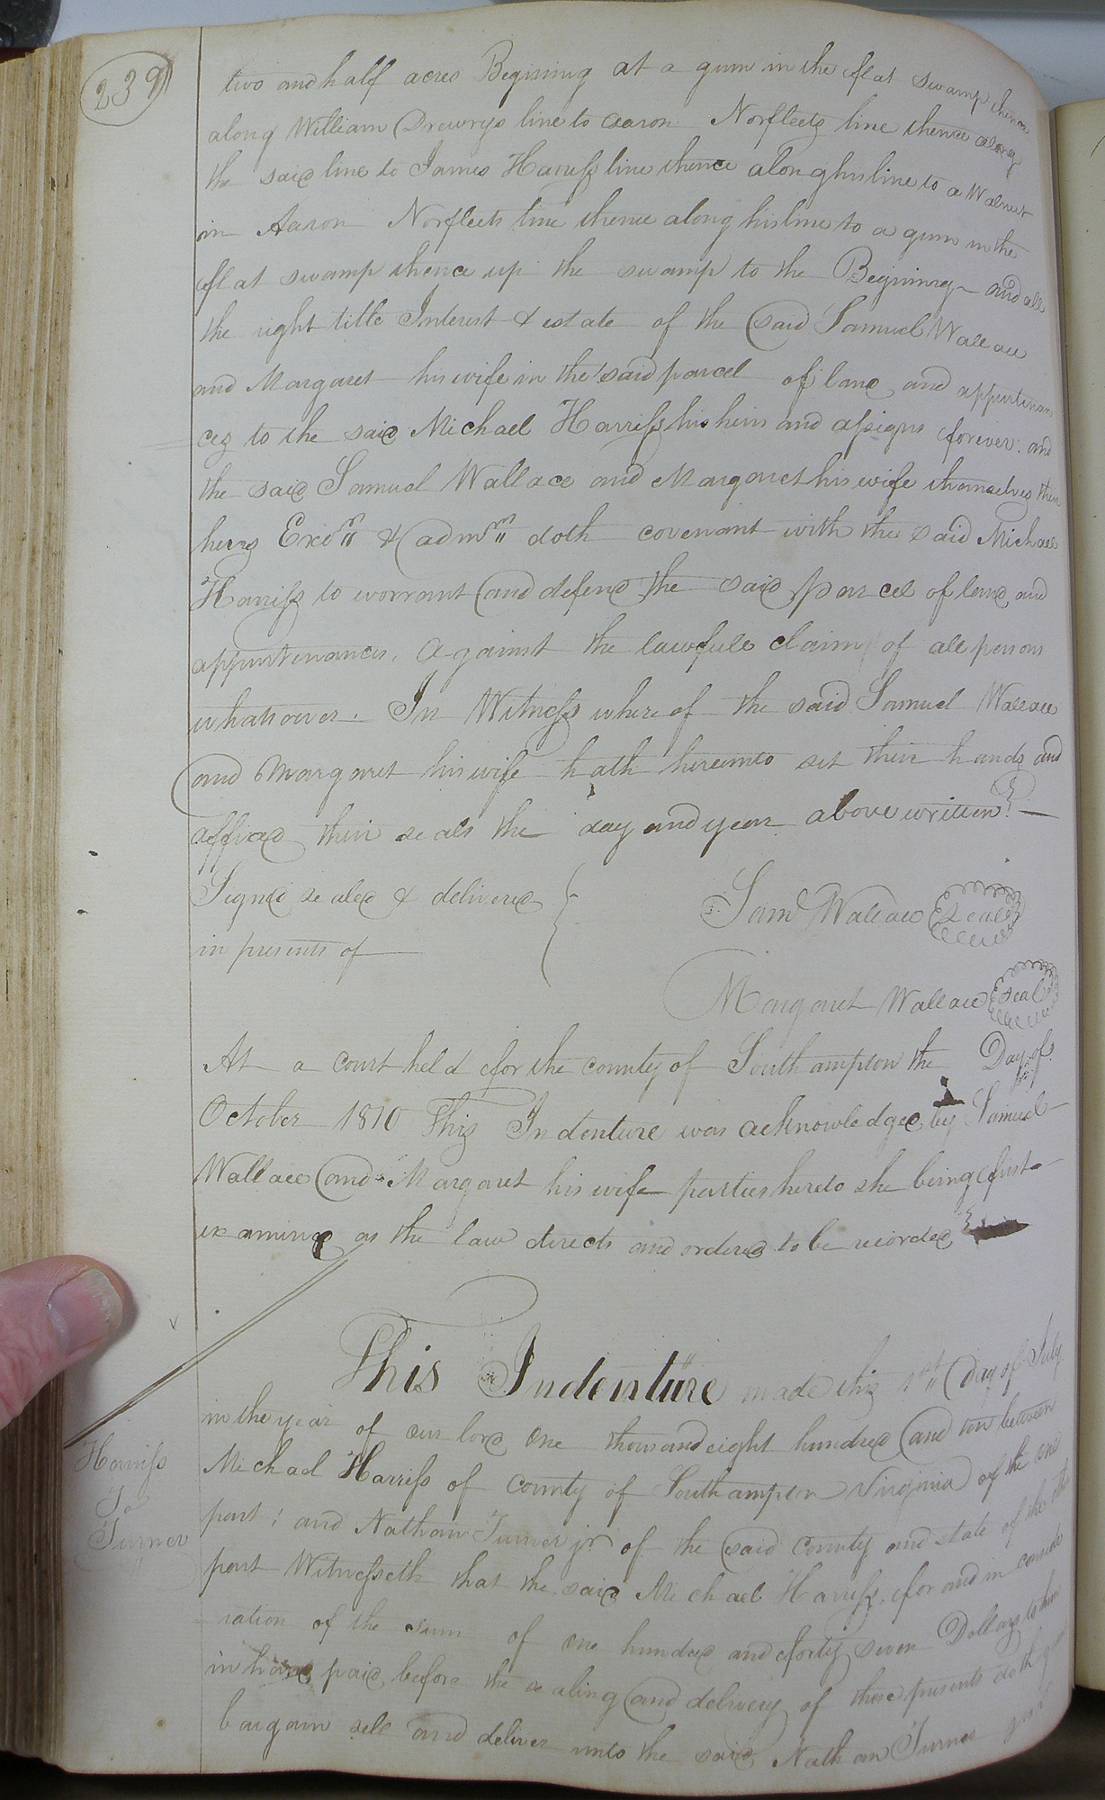 239
two and half acres Begining at a gum in the flat swamp thence
along William Drewrys line to Aaron Norfleets line thence along
the said line to James Harriss line thence along his line to a Walnut
in Aaron Norfleets line thence along his line to a gum in the
flat swamp thence up the swamp to the Begining and all
the right title Interest & estate of the said Samuel Wallace
and Margaret his wife in the said parcel of land and appurtenan
ces to the said Michael Harriss his heirs and assigns forever: and
the said Samuel Wallace and Margaret his wife themselves their
heirs Exo.rs & adm.rs doth covenant with the said Michael
Harriss to worrant and defend the said parcel of land and
appurtenances, Against the lawfull claim of all persons
whatsoever. In Witness where of the said Samuel Wallace
and Margaret his wife hath hereunto set their hands and
affixed their seals the day and year above written
Signed sealed & delivered
in presents of
Saml Wallace Seal
Margaret Wallace Seal
At a court held for the county of Southampton the Day of
October 1810 This Indenture was acknowledged by Samuel
Wallace and Margaret his wife parties hereto she being first
examined as the law directs and ordered to be recorded
Harriss
To
Turner
This Indenture made this 1st Day of July
in the year of our lord one thousand eight hundred and ten between
Michael Harriss of county of Southampton Virginia of the one
part; and Nathan Turner jr of the said County and state of the other
part Witnesseth that the said Michael Harriss, for and in conside
ration of the sum of one hundred and forty seven Dollars to him
in hand paid, before the sealing and delivery of these presents doth
bargain sell and deliver unto the said Nathan Turner